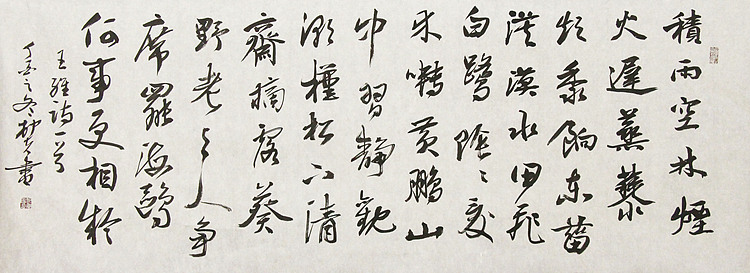 積雨空林煙
火遲蒸藜
炊黍餉東菑
漠漠水田飛
白鷺陰〻夏
木囀黃鸝山
中習靜觀
朝槿松下清
齋摘露葵
野老与人爭
席罷海鷗
何事更相疑
王維詩一首
丁亥之冬書